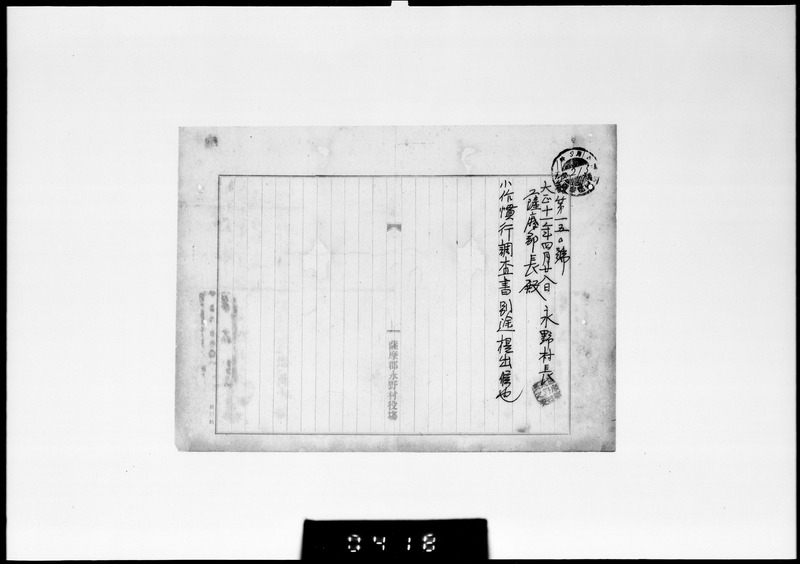 第一五〇號
大正十一年四月廿八日 永野村長
薩摩郡長殿
小作慣行調査書別途提出候也
薩摩郡永野村役場
0418